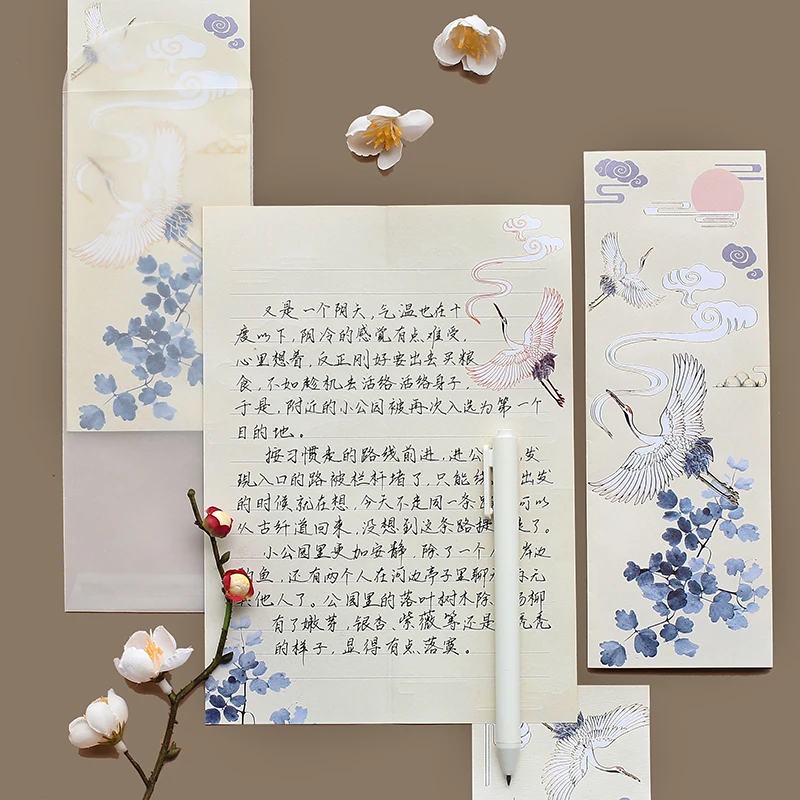 又是一个阴天,气温也在十
度以下,阴冷的感觉有点难受,
心里想着,反正刚好要出去买粮
食,不如趁机去活络活络身子,
于是,附近的小公园被再次入选为第一个
目的地。
按习惯走的路线前进,进公 发
现入口的路被栏杆堵了,只能 出发
的时候就在想,今天不走同一条 可以
从古纤道回来,没想到这条路 了。
小公园里更加安静,除了一个 岸边
钓鱼,还有两个人在河边亭子里聊
他人了。公园里的落叶树木除 杨柳
有了嫩芽,银杏、紫薇等还是 秃秃
的样子,显得有点落寞。